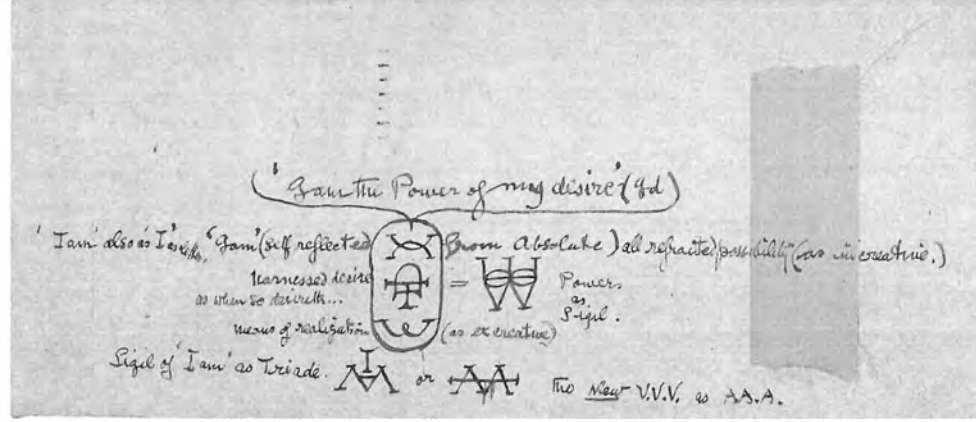 'I am the Power of my desire' (Id)
'I am' also as I 'I am' (self reflected from Absolute) all refracted possibility (as in creative.)
harnessed desire = Power
as when so desireth... as
Sigil.
means of realization (as ex creative)
Sigil of 'I am' as Triade. or The New V.V.V. as A.A.A.